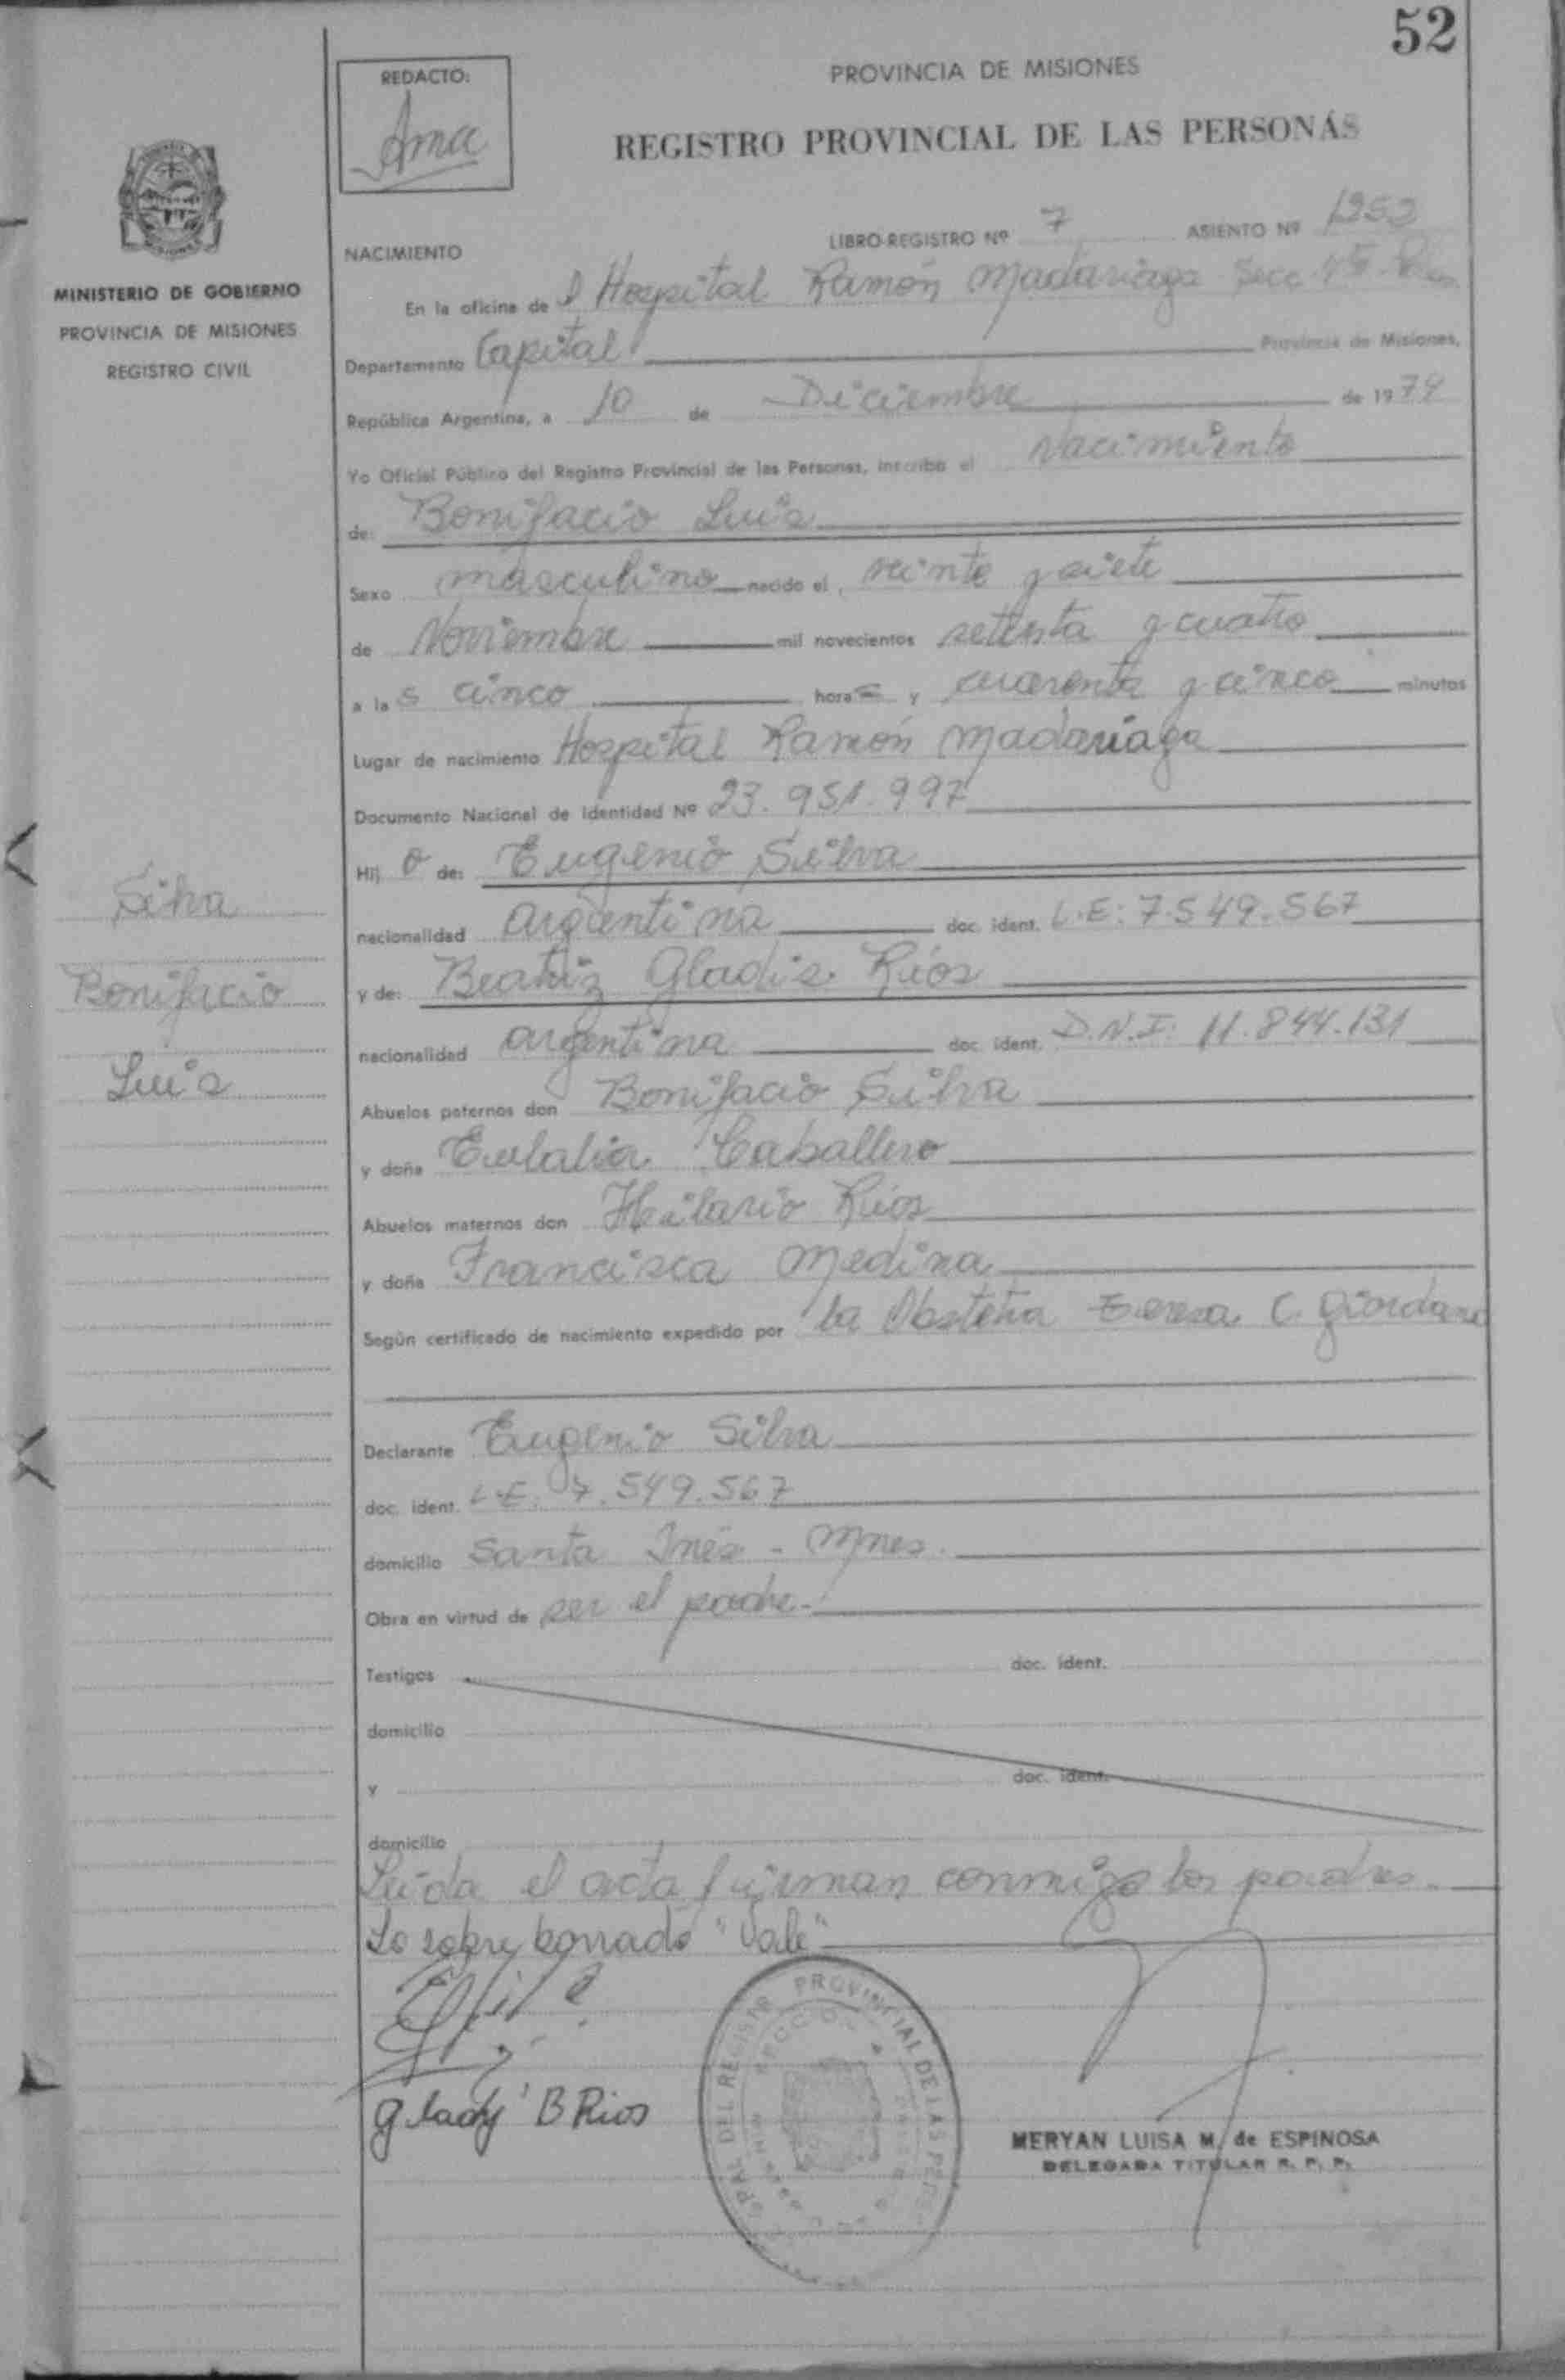 52
REDACTO:
Ama
PROVINCIA DE MISIONES
REGISTRO PROVINCIAL DE LAS PERSONAS
MINISTERIO DE GOBIERNO
PROVINCIA DE MISIONES
REGISTRO CIVIL
NACIMIENTO
LIBRO-REGISTRO Nº 7 ASIENTO Nº 1253
En la oficina de l Hospital Ramón Madariaga Secc Nº 5
Departamento Capital Provincia de Misiones,
República Argentina, a 10 de Diciembre de 1974
Yo Oficial Público del Registro Provincial de las Personas, inscribo el Nacimiento
de: Bonifacio Luis
Sexo masculino nacido el, veinte y siete
de Noviembre mil novecientos setenta y cuatro
a las cinco horas y cuarenta y cinco minutos
Lugar de nacimiento Hospital Ramón Madariaga
Documento Nacional de Identidad Nº 23.951.997
Hijo de: Eugenio Silva
nacionalidad argentina doc. ident. L.E: 7.549.567
y de: Beatriz Gladis Ríos
nacionalidad argentina doc. ident. D.N.I: 11.844.131
Abuelos paternos don Bonifacio Silva
y doña Eulalia Caballero
Abuelos maternos don Hilario Ríos
y doña Francisca Medina
Según certificado de nacimiento expedido por la Obstetra Teresa C. Giordano
Declarante Eugenio Silva
doc. ident. L.E. 7.549.567
domicilio Santa Inés - Mnes.
Obra en virtud de ser el padre.-
Testigos doc. ident.
domicilio
y doc. ident.
domicilio
Leída el acta firman conmigo los padres.
Lo sobre borrado "Vale"
Silva
Bonifacio
Luis
glady B Rios
PROVINCIAL DE LAS PERS
MERYAN LUISA M. de ESPINOSA
DELEGADA TITULAR R. P. P.